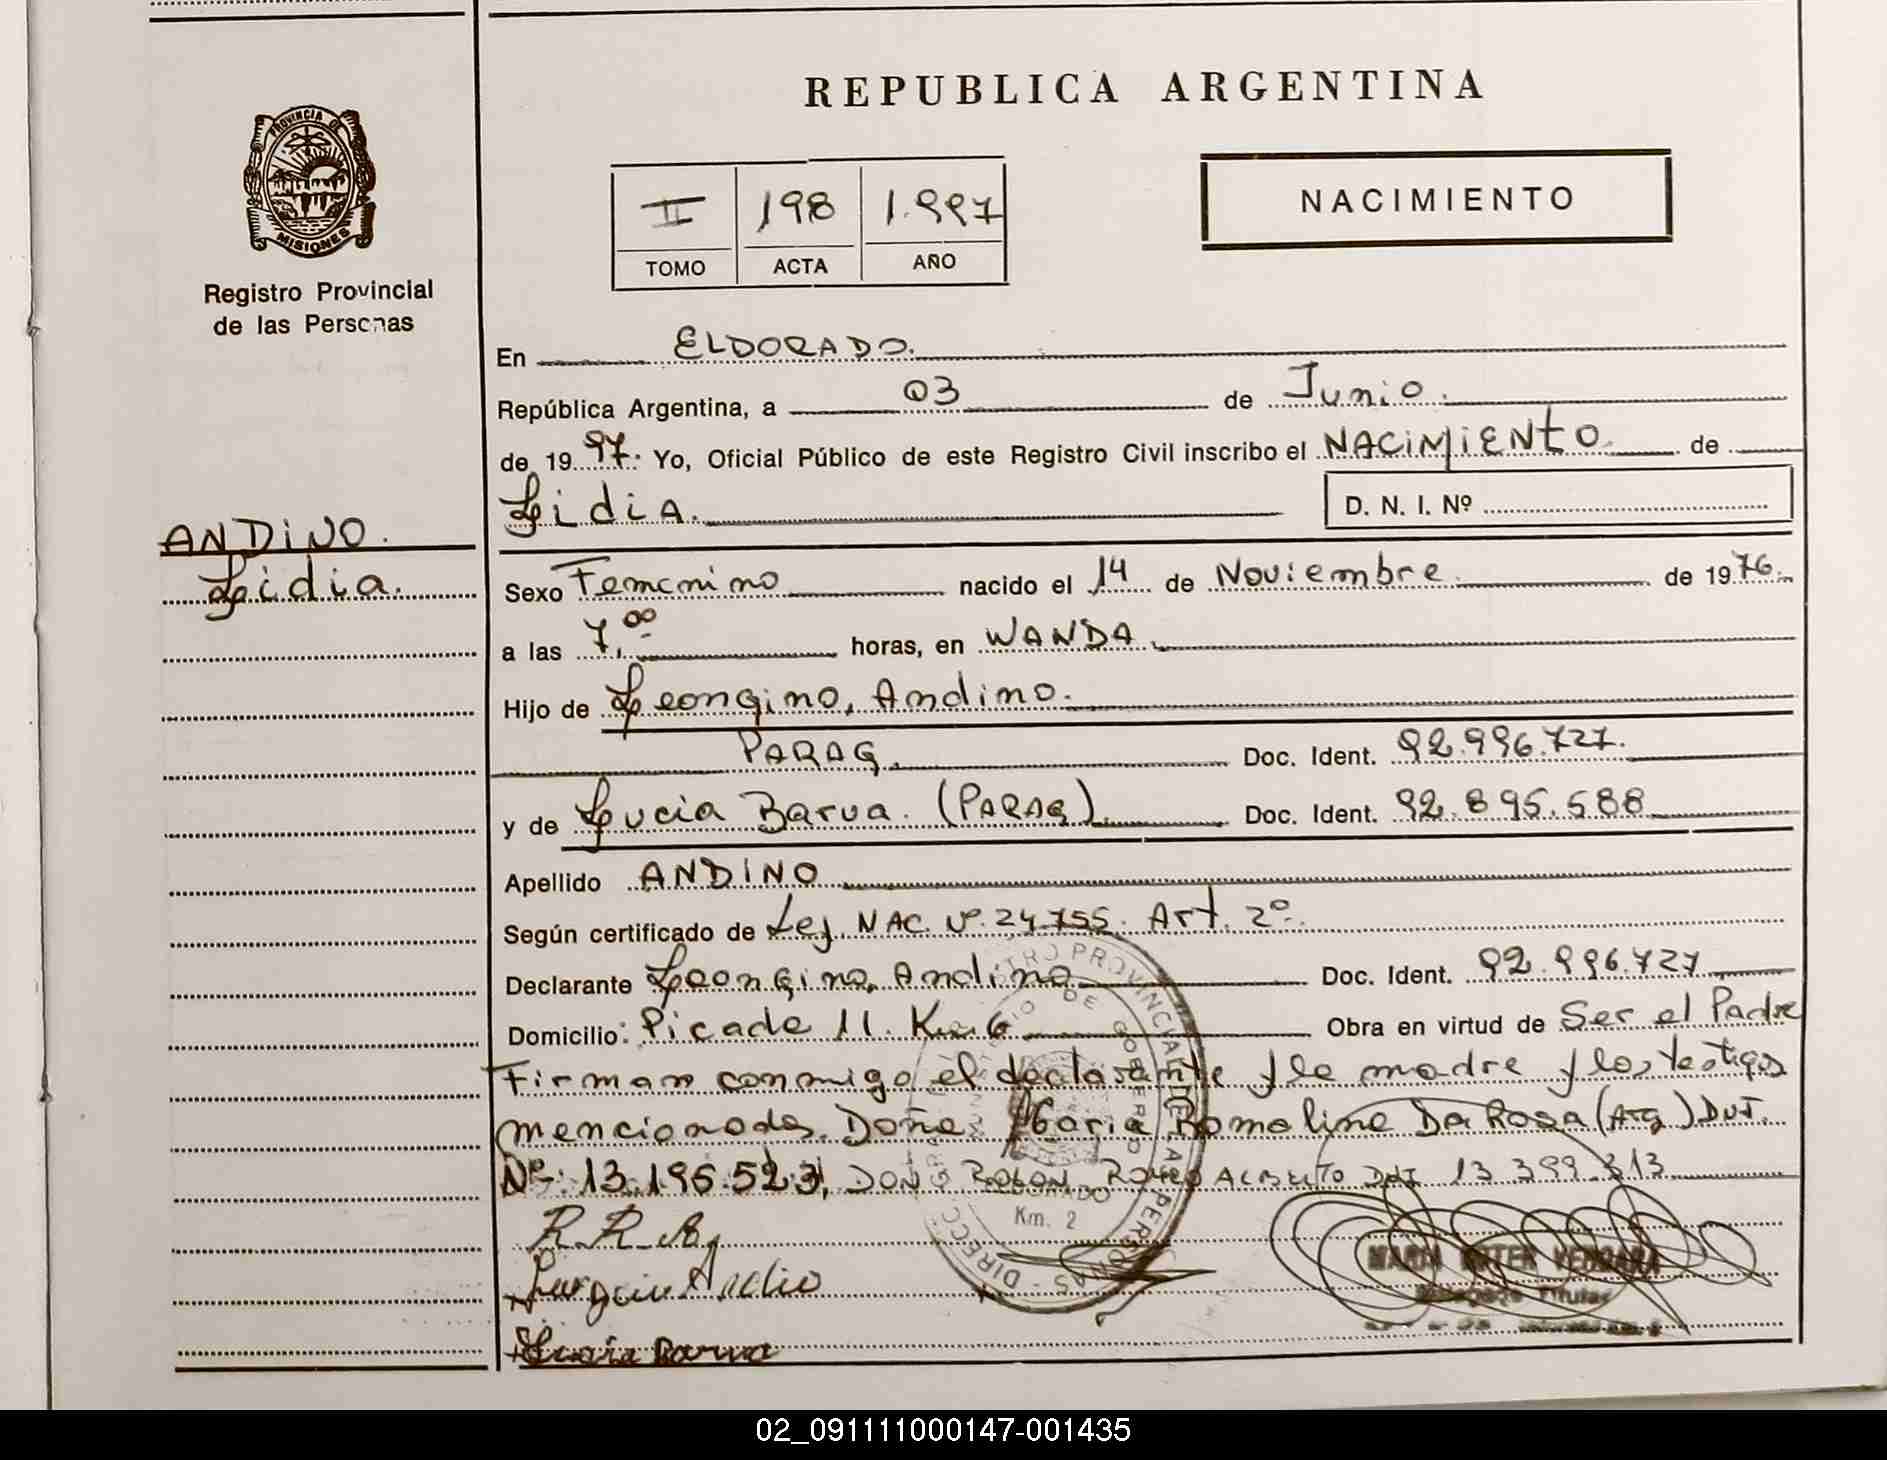 REPUBLICA ARGENTINA
PROVINCIA DE
MISIONES
Registro Provincial
de las Personas
II 198 1.997
TOMO ACTA AÑO
NACIMIENTO
En ELDORADO.
República Argentina, a 03 de Junio.
de 1997. Yo, Oficial Público de este Registro Civil inscribo el NACIMIENTO de
Lidia. D. N. I. Nº
ANDINO.
Lidia.
Sexo Femenino nacido el 14 de Noviembre. de 1976.
a las 7,00 horas, en WANDA.
Hijo de Leongino, Andino.
PARAG. Doc. Ident. 92.996.727.
y de Lucia Barua. (PARAG). Doc. Ident. 92.895.588
Apellido ANDINO
Según certificado de Ley. NAC. Nº. 24.755. Art. 2º.
Declarante Leongino, Andino Doc. Ident. 92.996.727
Domicilio: Picada 11. Km. 6 Obra en virtud de Ser el Padre
Firman conmigo el declarante y la madre y los testigos
mencionados. Doña: Maria Romelina Da Rosa (Arg) DNI.
Nº: 13.195.523, DON ROLON, ROMEO ALBERTO DNI 13.399.313
R.R.A.
Andio
Lucia Barua
Km. 2
Titular
02_091111000147-001435